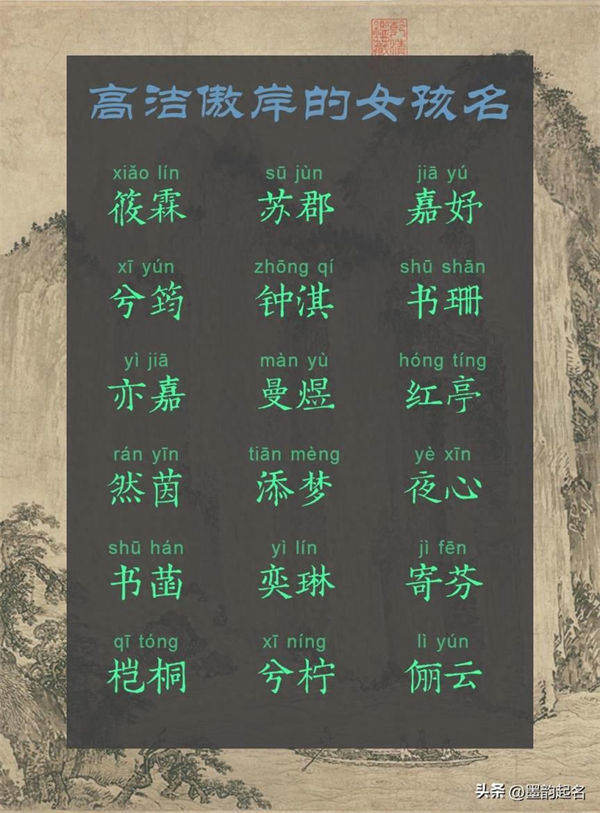 高洁傲岸的女孩名
xiǎo lín sū jùn jiā yú
筱霖 苏郡 嘉妤
xī yún zhōng qí shū shān
兮筠 钟淇 书珊
yì jiā màn yù hóng tíng
亦嘉 曼煜 红亭
rán yīn tiān mèng yè xīn
然茵 添梦 夜心
shū hán yì lín jì fēn
书菡 奕琳 寄芬
qī tóng xī níng lì yún
桤桐 兮柠 俪云
头条 @墨韵起名